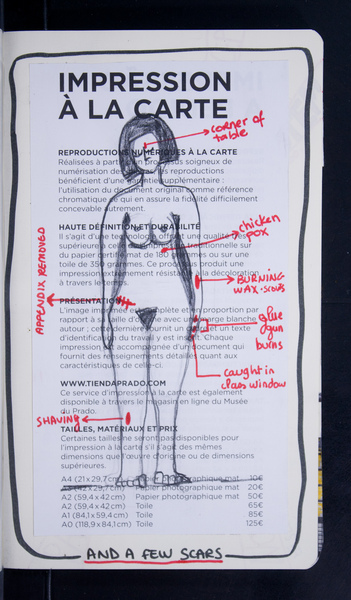 IMPRESSION
À LA CARTE
corner of
table
REPRODUCTIONS NUMÉRIQUES À LA CARTE
Réalisées à partir d'un processus soigneux de
numérisation de les reproductions
bénéficient d'une supplémentaire :
l'utilisation du document original comme référence
chromatique qui en assure la fidélité difficilement
concevable autrement.
HAUTE DÉFINITION ET DURABILITÉ
Il s'agit d'une technologie offrant une qualité
supérieure à impression traditionnelle sur
du papier certifié mat de 180 grammes ou sur une
toile de 350 grammes. Ce procédé produit une
impression hautement résistante à la décoloration
à travers le
chicken
pox
BURNING
WAX-SCARS
APPENDIX REMOVED
PRÉSENTATION
L'image imprimée est complète et en proportion par
rapport à sa taille d'origine avec une marge blanche
autour ; cette dernière fournit un et un texte
d'identification du travail y est inscrit. Chaque
impression est accompagnée d'un document qui
fournit des renseignements détaillés quant aux
caractéristiques de celle-ci.
glue
gun
burns
caught in
class window
WWW.TIENDAPRADO.COM
Ce service d'impression à la carte est également
disponible à travers le magasin en ligne du Musée
du Prado.
SHAVING
TAILLES, MATÉRIAUX ET PRIX
Certaines tailles ne seront pas disponibles pour
l'impression à la carte s'il s'agit des mêmes
dimensions que l'œuvre d'origine ou de dimensions
supérieures.
A4 (21 x 29,7 cm) Papier photographique mat 10€
(42 x 29,7 cm) Papier photographique mat 20€
A2 (59,4 x 42 cm) Papier photographique mat 50€
A2 (59,4 x 42 cm) Toile 65€
A1 (84,1 x 59,4 cm) Toile 85€
A0 (118,9 x 84,1 cm) Toile 125€
AND A FEW SCARS